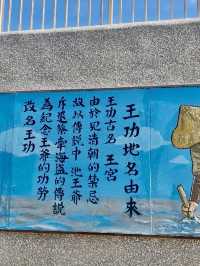 王功地名由來
王功古名 王宮
由於犯清朝的禁忌
故以傳說中 池王爺
斥退蔡牽海盜的傳說
為紀念王爺的功勞
改名王功